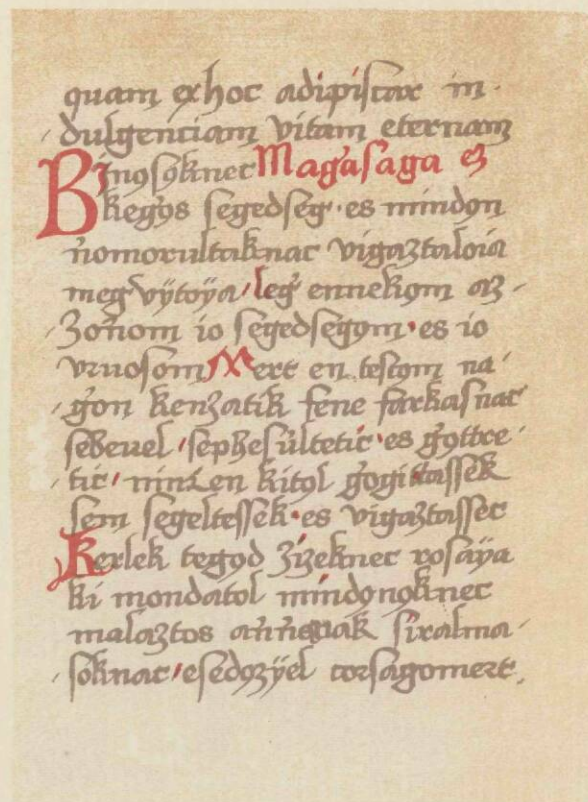 quam ex hoc adipiscar in
dulgenciam vitam eternam
Binosoknec Magasaga es
kegos segedseg · es mindon
nomorultaknac vigaztaloia
meg vÿtoÿa / leg ennekom az
zonom io segedsegom · es io
vruosom Mert en testom na
gon kenzatik fene farkasnac
sebeuel / sephesultetic · es gottre
tic / ninčen kitol gogittassek
sem segeltessek · es vigaztassec
Kerlek tegod zizeknec rosaÿa
ki mondatol mindonoknec
malaztos annanak siralma
soknac / esedozÿel torsagomert